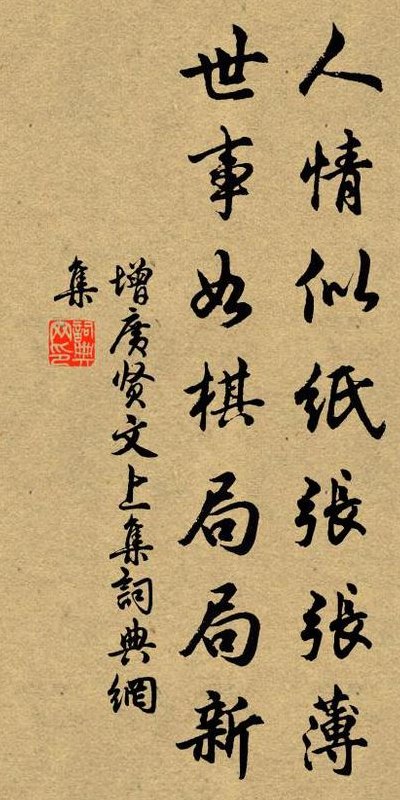 人情似紙張張薄
世事如棋局局新
增广贤文上集詞典網
集
詞典
网印